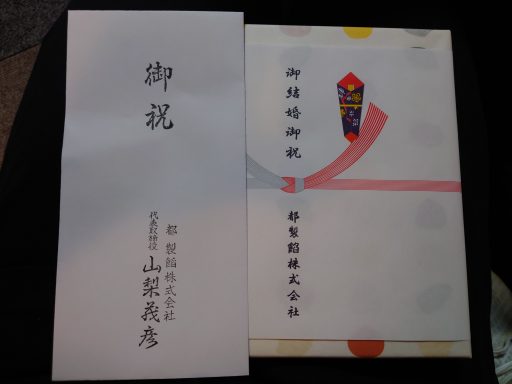 御祝
都製餡株式会社
代表取締役 山梨義彦
御結婚御祝
都製餡株式会社